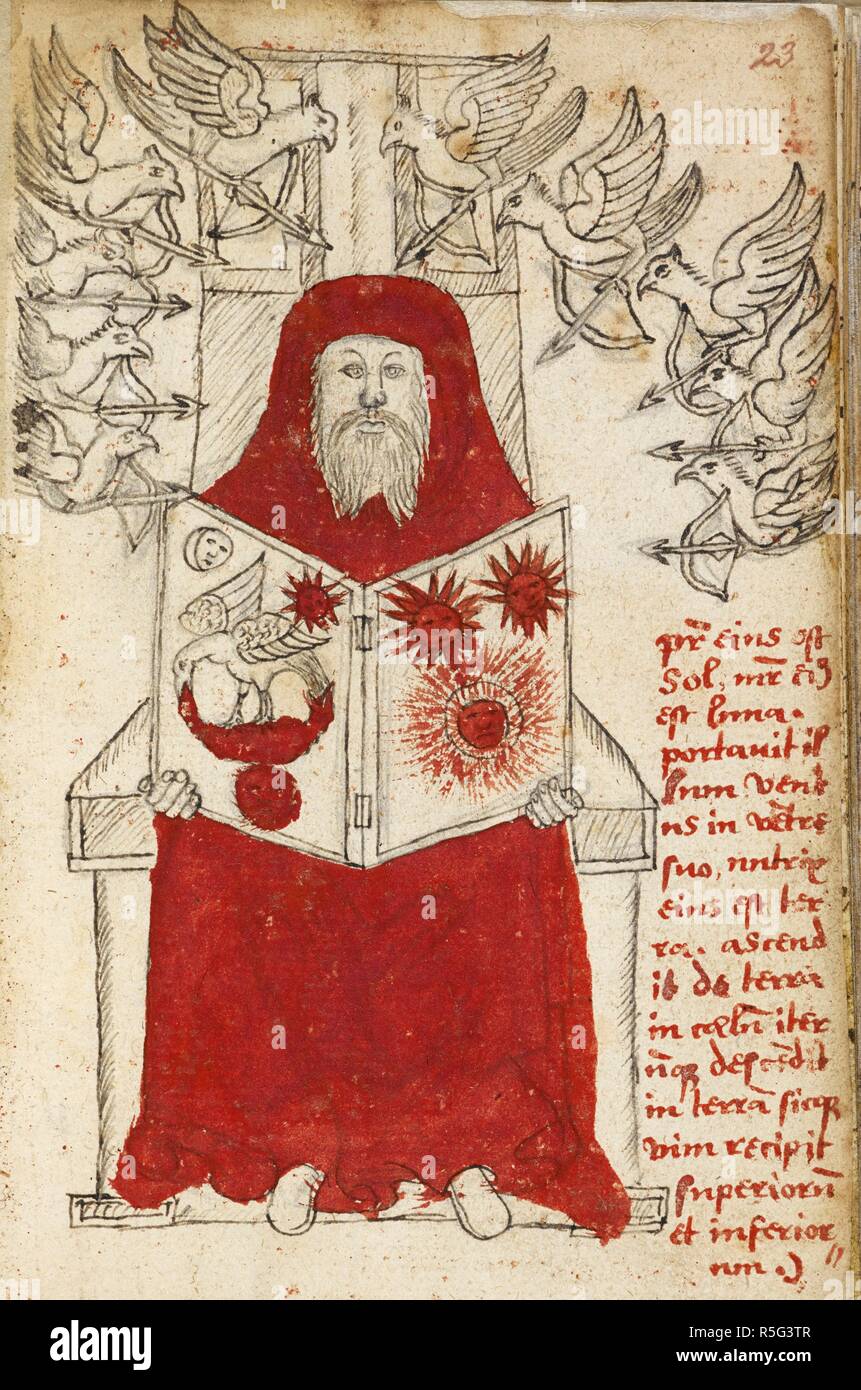 23
pr̃ eius est
Sol, mr̃ ei9
est luna.
portauit il
lum uent
us in vẽtre
suo, nutrix
eius est ter
ra. ascend
it de terra
in cœlũ iter
ũq3 descẽdit
in terrã sicq3
vim recipit
superiorũ
et inferior
um.
alamy
Image ID: R5G3TR
www.alamy.com